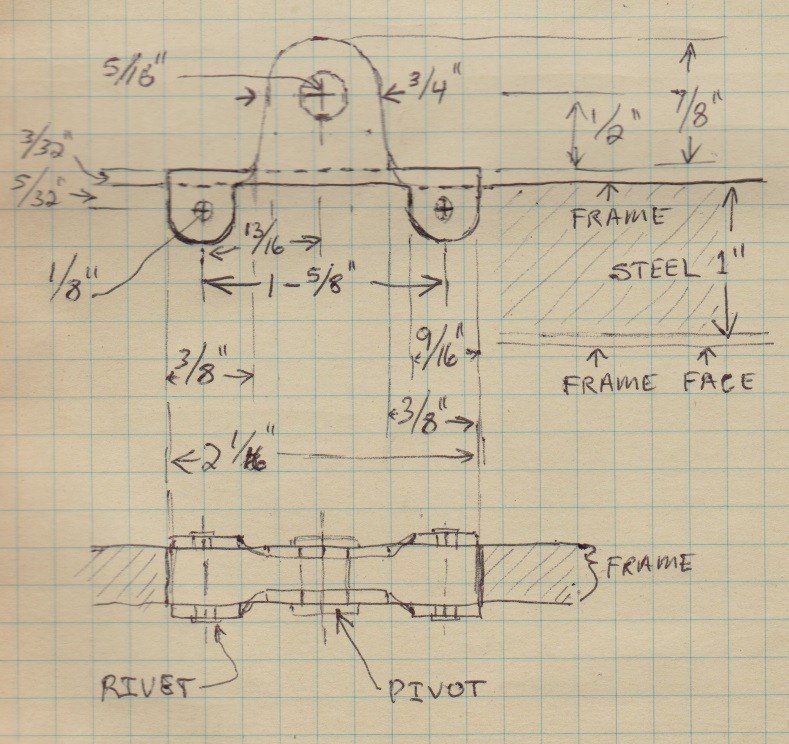 5/16"
3/4"
7/8"
1/2"
3/32"
5/32"
FRAME
13/16
STEEL 1"
1/8"
1 - 5/8"
9/16"
3/8"
FRAME FACE
3/8"
2 1/16"
FRAME
RIVET
PIVOT